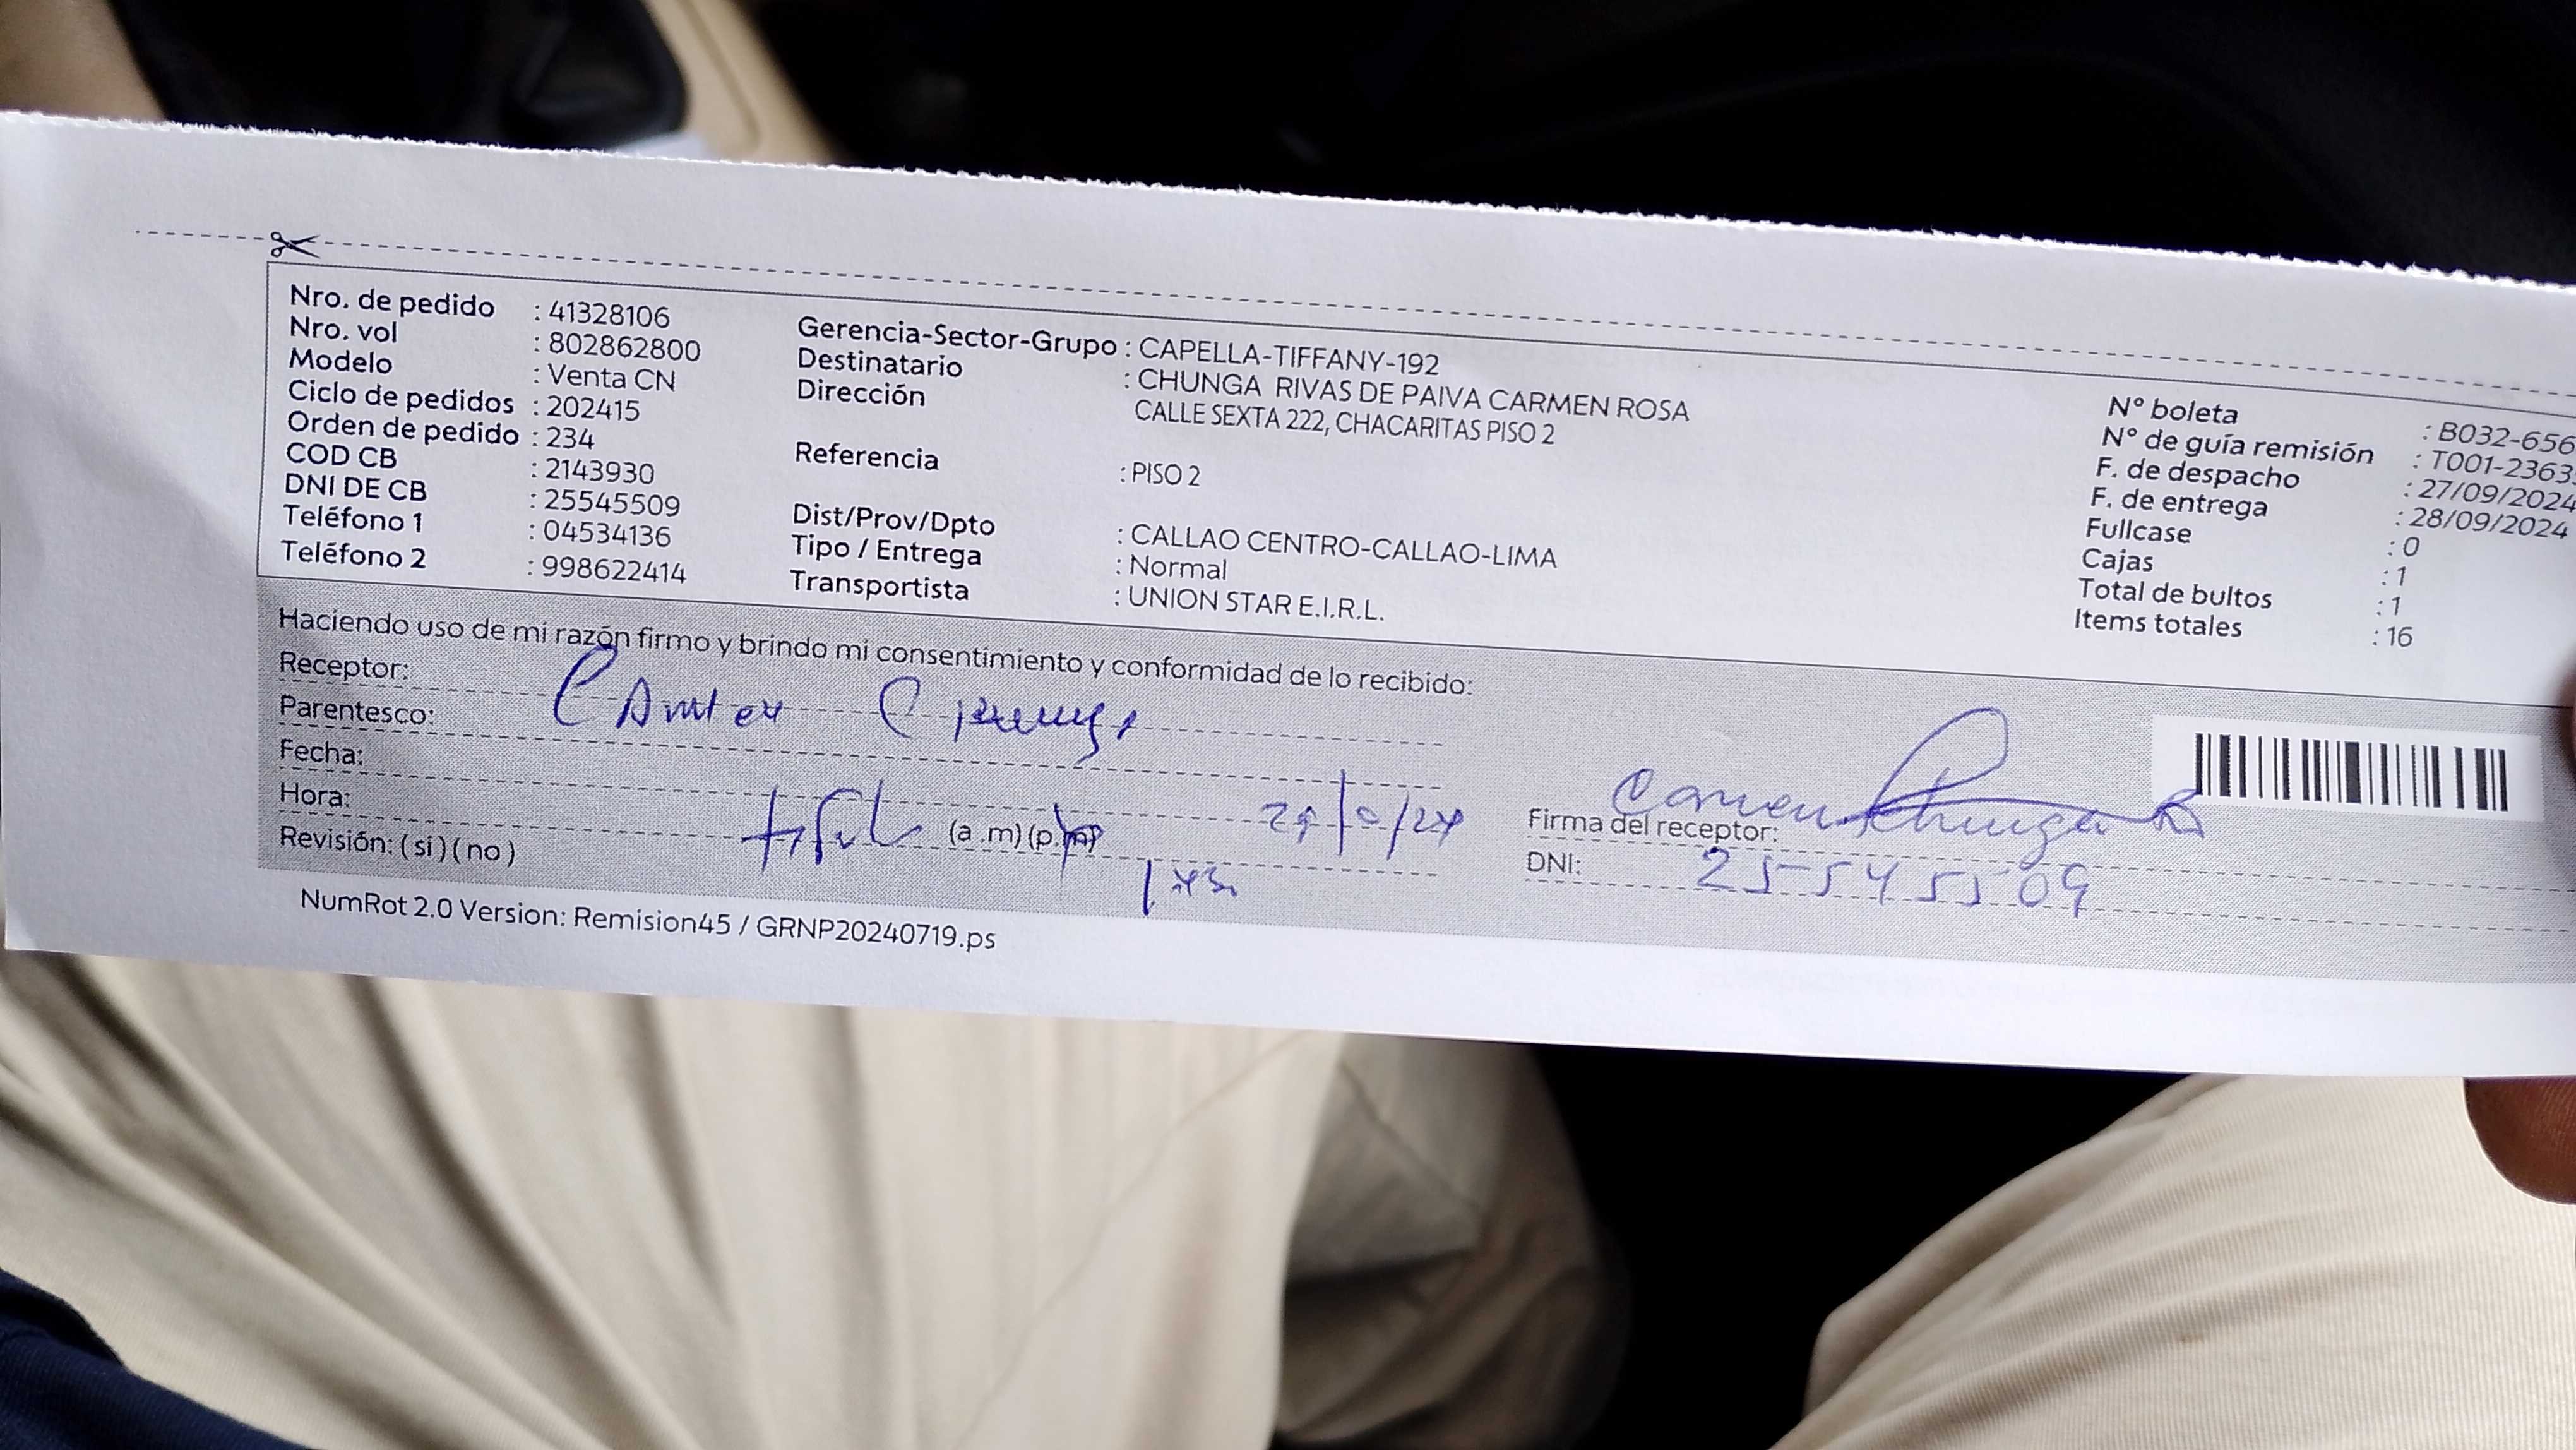 Nro. de pedido : 41328106
Nro. vol : 802862800
Modelo : Venta CN
Ciclo de pedidos : 202415
Orden de pedido : 234
COD CB : 2143930
DNI DE CB : 25545509
Teléfono 1 : 04534136
Teléfono 2 : 998622414
Gerencia-Sector-Grupo : CAPELLA-TIFFANY-192
Destinatario : CHUNGA RIVAS DE PAIVA CARMEN ROSA
Dirección CALLE SEXTA 222, CHACARITAS PISO 2
Referencia : PISO 2
Dist/Prov/Dpto : CALLAO CENTRO-CALLAO-LIMA
Tipo / Entrega : Normal
Transportista : UNION STAR E.I.R.L.
N° boleta : B032-656
N° de guía remisión : T001-2363
F. de despacho : 27/09/2024
F. de entrega : 28/09/2024
Fullcase : 0
Cajas : 1
Total de bultos : 1
Items totales : 16
Haciendo uso de mi razón firmo y brindo mi consentimiento y conformidad de lo recibido:
Receptor:
Parentesco:
Fecha:
Hora: (a.m)(p.m)
Revisión: (si)(no)
Firma del receptor: Carmen Chunga R
DNI: 25545509
NumRot 2.0 Version: Remision45 / GRNP20240719.ps